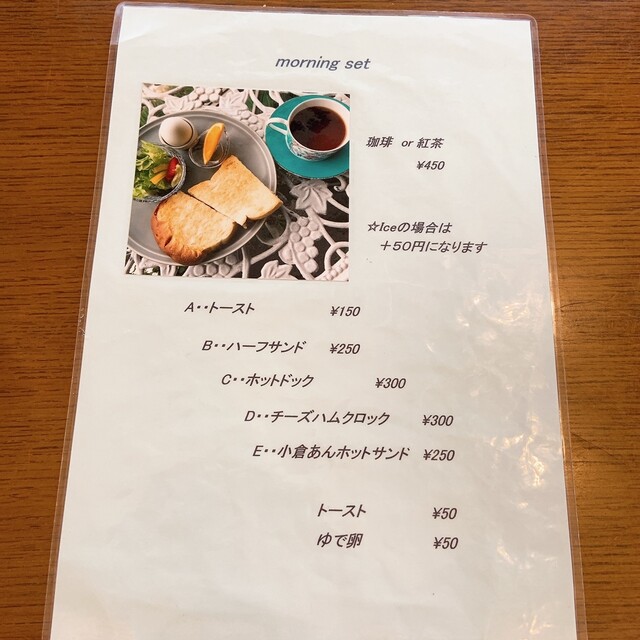 morning set
珈琲 or 紅茶
¥450
☆Iceの場合は
＋50円になります
A・・トースト ¥150
B・・ハーフサンド ¥250
C・・ホットドック ¥300
D・・チーズハムクロック ¥300
E・・小倉あんホットサンド ¥250
トースト ¥50
ゆで卵 ¥50